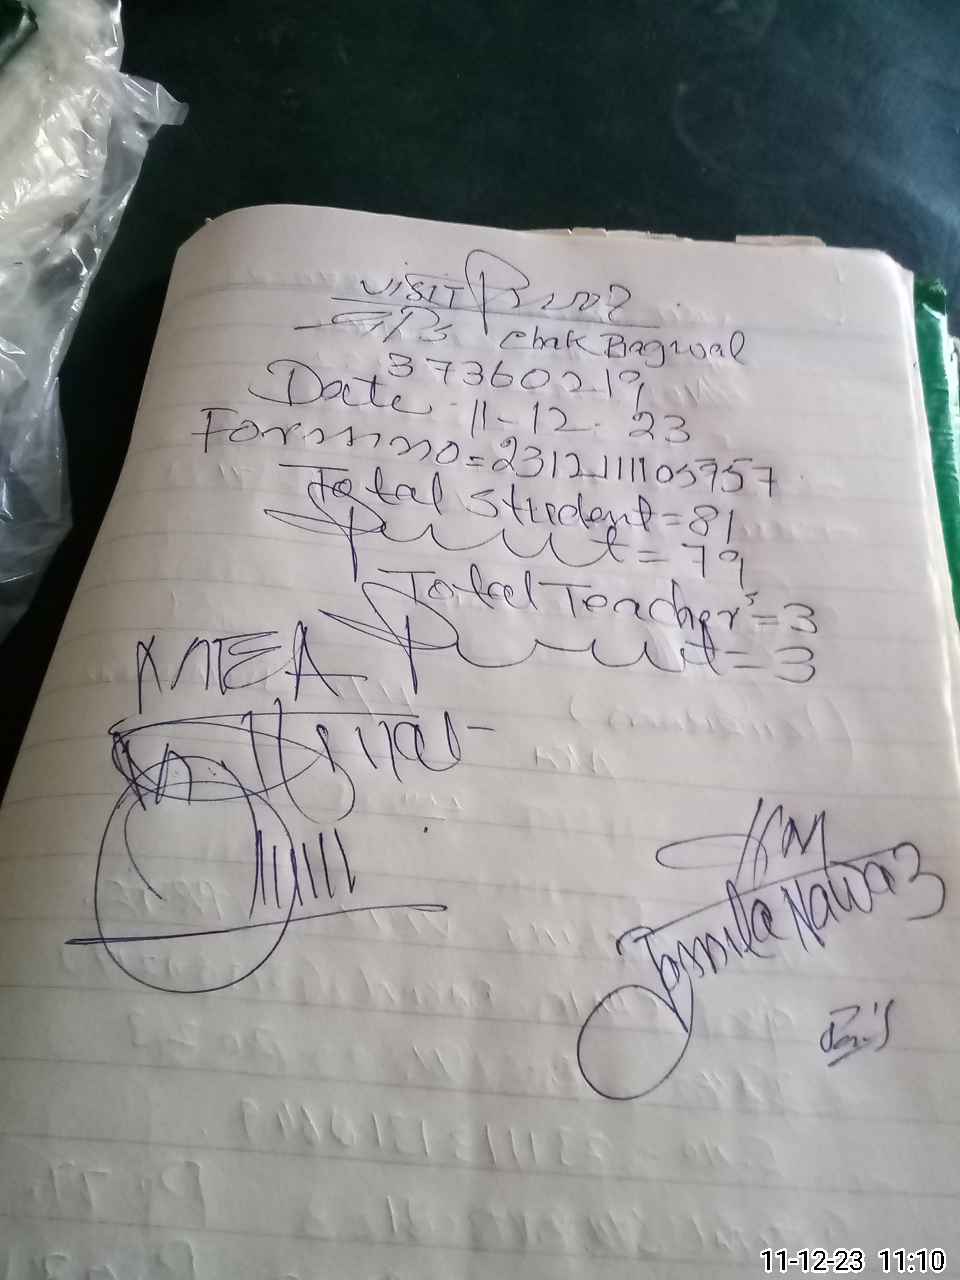 VISIT Proof
GPS Chak Bagwal
37360219
Date 11-12-23
Form no = 2312111105757
Total Student = 81
Present = 79
Total Teacher's = 3
Present = 3
MEA
HM
Jamila Nawaz
11-12-23 11:10